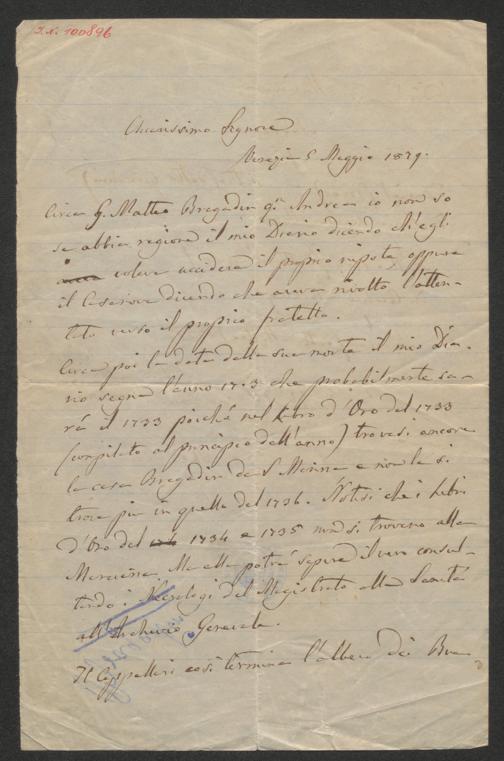 I.N. 100896
Chiarissimo Signore
Venezia 5 Maggio 1879.
Circa G. Matteo Bragadin q.m Andrea io non so
se abbia ragione il mio Diario dicendo ch'egli
voleva uccidere il proprio nipote, oppure
il Casanova dicendo che aveva rivolto l'atten-
tato verso il proprio fratello.
Circa poi la data della sua morte il mio Dia-
rio segna l'anno 1703 che probabilmente sa-
rà il 1733 poiché nel Libro d'Oro del 1733
(compilato al principio dell'anno) trovasi ancora
la casa Bragadin da S. Marina e non la si
trova più in quello del 1736. Notisi che i Libri
d'Oro del 1734 e 1735 non si trovano alla
Marciana. Ma ella potrà sapere il vero consul-
tando i Necrologi del Magistrato alla Sanità
all'Archivio Generale.
Il Cappellari così termina l'albero dei Bra-